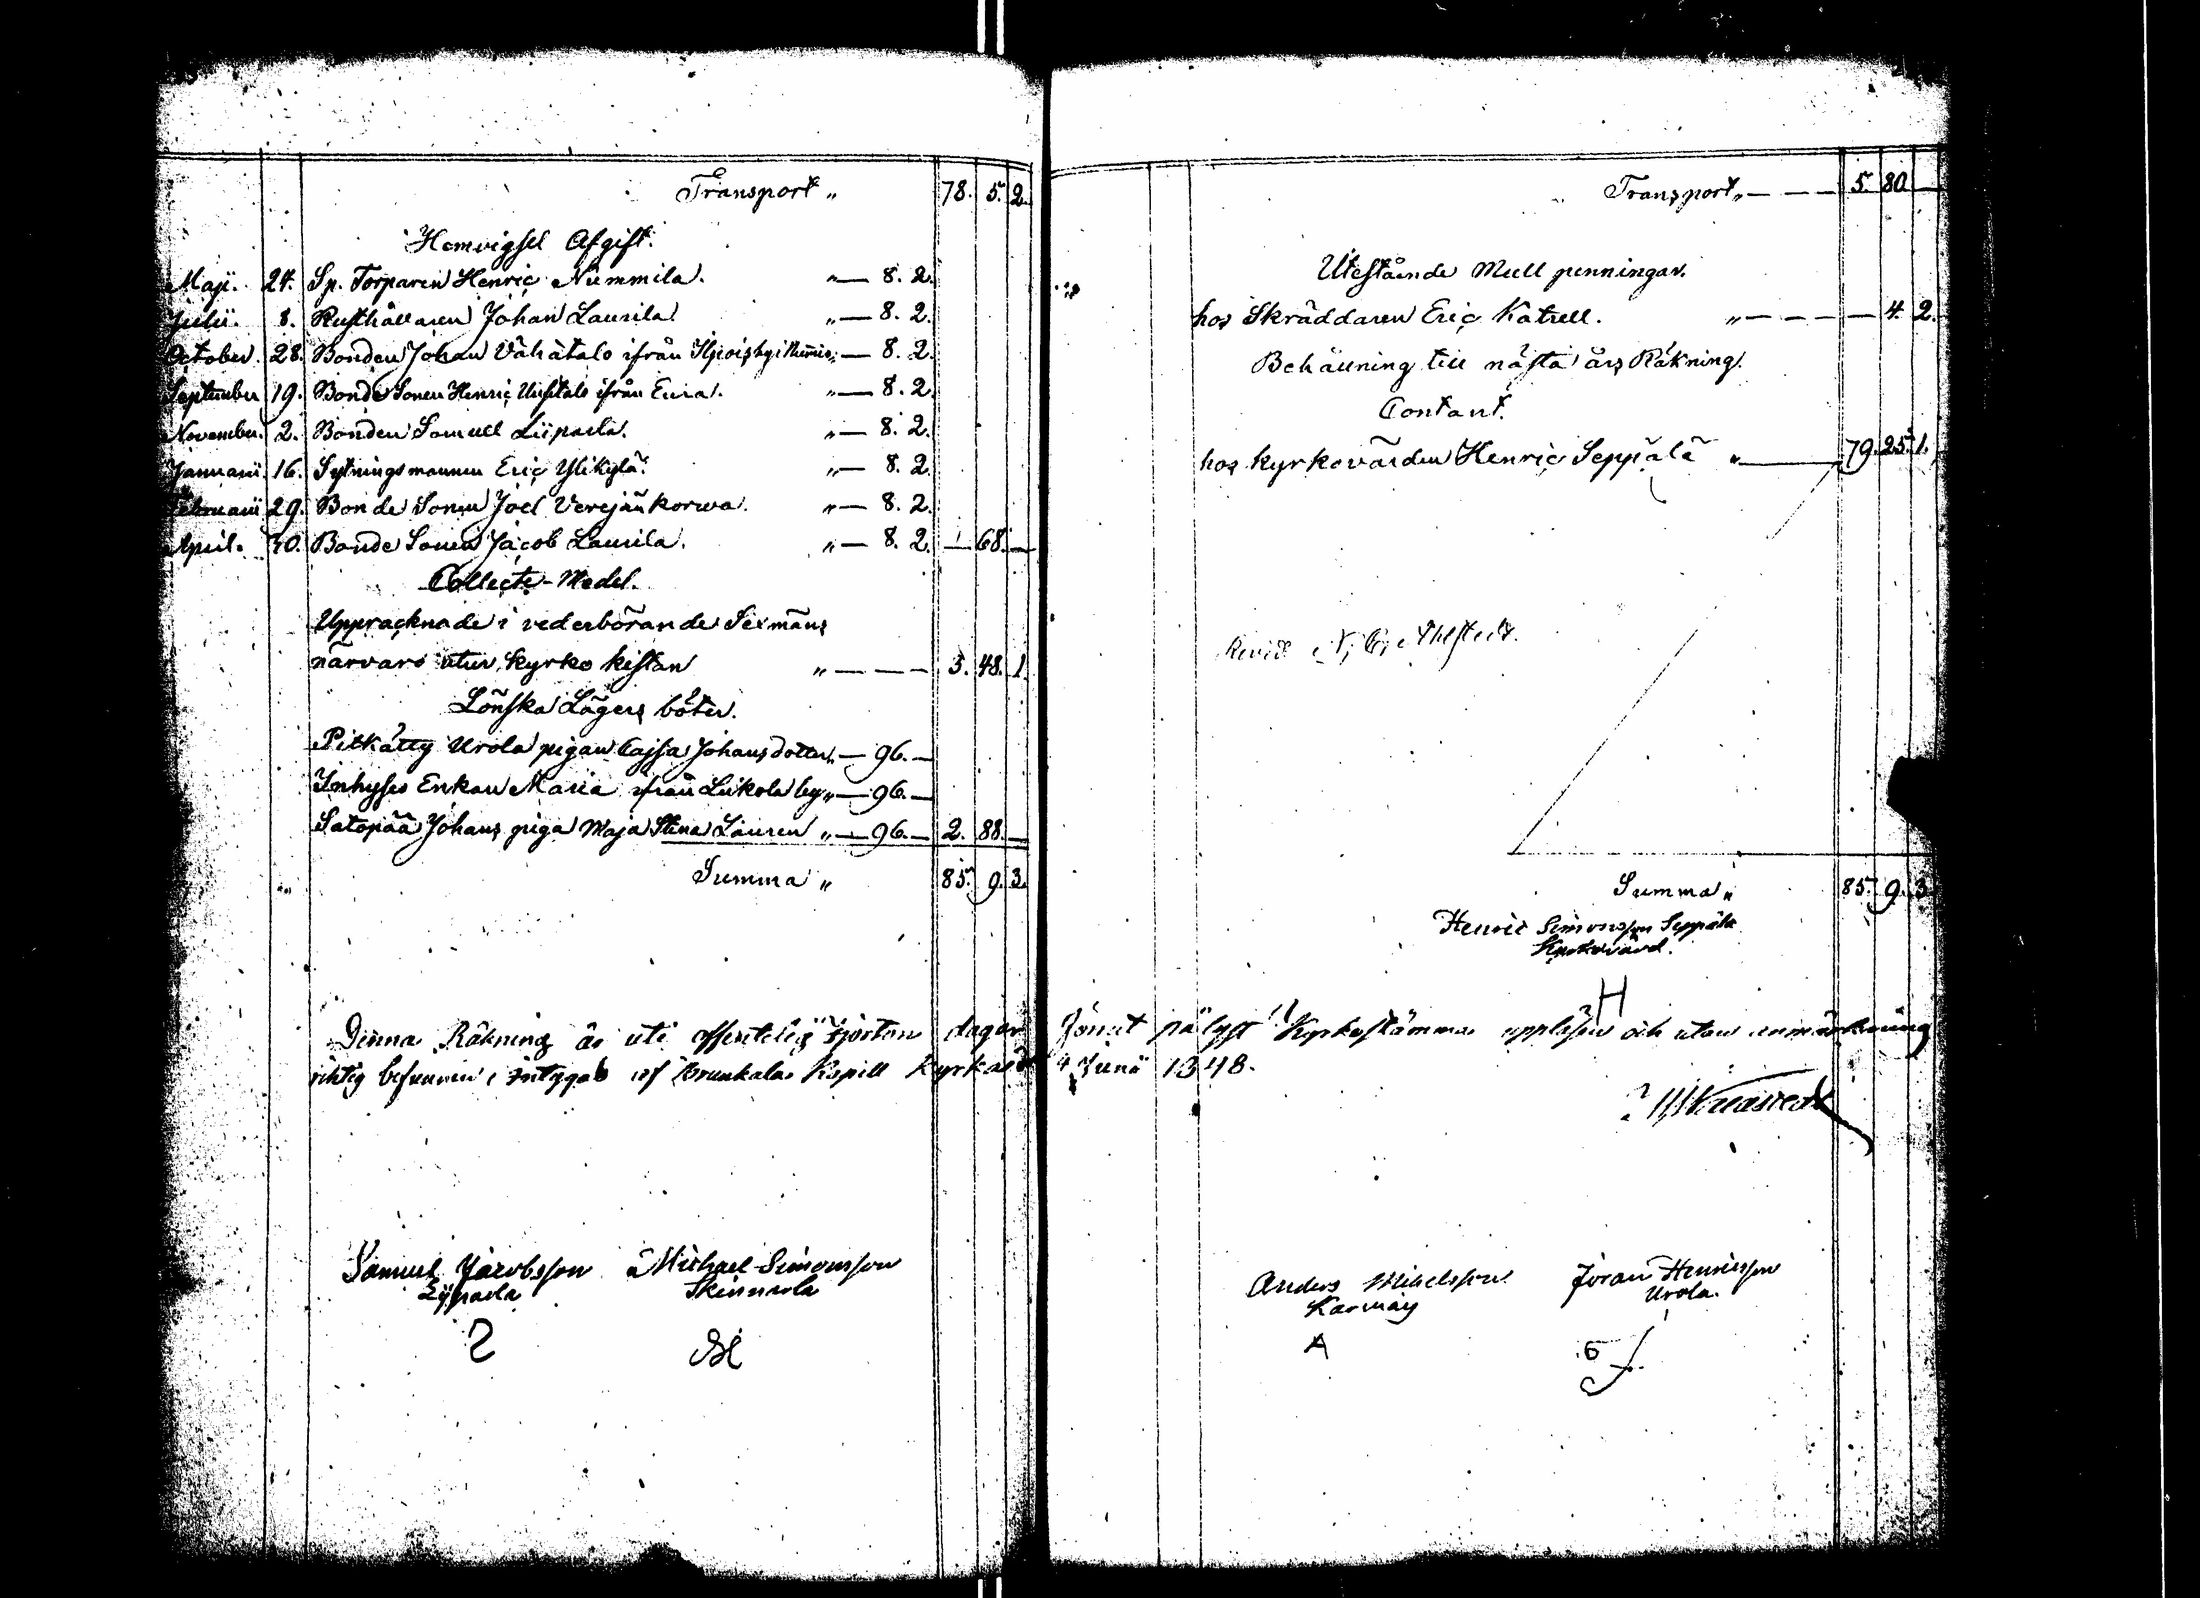 Transport „ 78. 5. 2.
Hemvigsel Afgift.
Maji. 24. Sp. Torparen Henric Nummila. „ — 8. 2.
Julii. 8. Rusthållaren Johan Laurila „ — 8. 2.
October. 28. Bonden Johan Vähätalo ifrån „ — 8. 2.
September 19. Bonde Sonen Henric Uusitalo ifrån Eura. „ — 8. 2.
November. 2. Bonden Samuel Liipaela. „ — 8. 2.
Januarii 16. Sytningsmannen Eric Ylikylä. „ — 8. 2.
Februarii 29. Bonde Sonen Joel Verejänkorwa. „ — 8. 2.
April. 30. Bonde Sonen Jacob Laurila. „ — 8. 2. — 68. —
Collecte-Medel.
Uppräcknade i vederbörande Sexmäns
närvaro utur Kyrko kistan „ — — — 3. 48. 1.
Lönska Lägers böter.
Urola pigan Cajsa Johansdotter „ — 96. —
Inhyses Enkan Maria ifrån Liikola by „ — 96. —
Satopää Johans piga Maja Stina Lauren „ — 96. — 2. 88. —
Summa „ 85. 9. 3.
Denna Räkning är uti offentelig fjorton dagar
richtig befunnen; intygas af Brunkala Kapell Kyrka d
Samuel Jacobsson
Liipaela
Michael Simonsson
Skinnarla
Transport „ — — — 5. 80 —
Utestående Mull penningar.
hos Skräddaren Eric Katrell. „ — — — 4. 2.
Behållning till nästa års Räkning.
Contant.
hos kyrkovärden Henric Seppälä „ — 79. 25. 1.
Revid. Ahlstedt.
Summa „ 85. 9. 3.
Henric Simonsson Seppälä
Kyrkovärd.
H
förut pålyst Kyrkostämma uppläsen och utan anmärkning
4 Junii 1848.
Anders Mihelsson
Karmay
A
Jöran Henricsson
Urola.